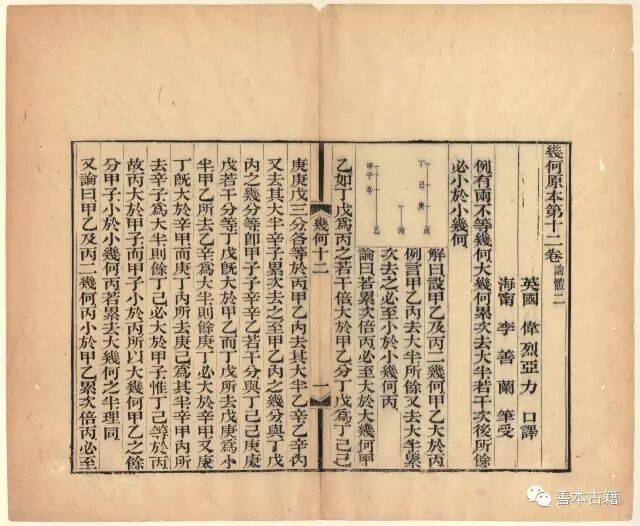 幾何原本第十二卷 論體二
英國 偉烈亞力 口譯
海甯 李善蘭 筆受
例有兩不等幾何大幾何累次去大半若干次後所餘
必小於小幾何
解曰設甲乙及丙二幾何甲乙大於丙
例言甲乙內去大半所餘又去大半累
次去之必至小於小幾何丙
論曰若累次倍丙必至大於大幾何甲
丁 己 庚 戊
丙
甲 子 辛 乙
乙如丁戊爲丙之若干倍大於甲乙分丁戊爲丁己己
幾何十二 一
庚庚戊三分各等於丙甲乙內去其大半乙辛乙辛內
又去其大半辛子累次去之至甲乙之幾分與丁戊
內之幾分等卽甲子子辛辛乙若干分與丁己己庚庚
戊若干分等丁戊旣大於甲乙而丁戊所去戊庚爲小
半甲乙所去乙辛爲大半則餘庚丁必大於辛甲又庚
丁旣大於辛甲而庚丁內所去庚己爲其半辛甲內所
去辛子爲大半則餘丁己必大於甲子惟丁己等於丙
故丙大於甲子而甲子小於丙所以大幾何甲乙之餘
分甲子小於小幾何丙若累去大幾何之半理同
又論曰甲乙及丙二幾何丙小於甲乙累次倍丙必至
善本古籍